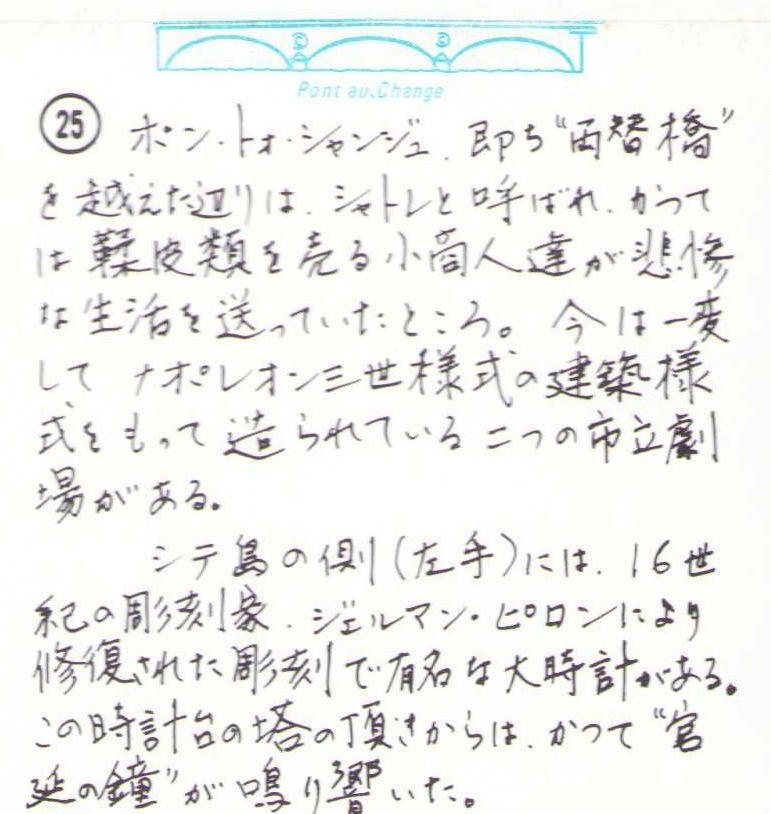 © ©
Pont au.Change
25 ポン・トォ・シャンジュ、即ち“両替橋”
を越えた辺りは、シャトレと呼ばれ、かつて
は鞣皮類を売る小商人達が悲惨
な生活を送っていたところ。今は一変
して ナポレオン三世様式の建築様
式をもって造られている二つの市立劇
場がある。
シテ島の側(左手)には、16世
紀の彫刻家、ジェルマン・ピロンにより
修復された彫刻で有名な大時計がある。
この時計台の塔の頂きからは、かつて“宮
延の鐘”が鳴り響いた。